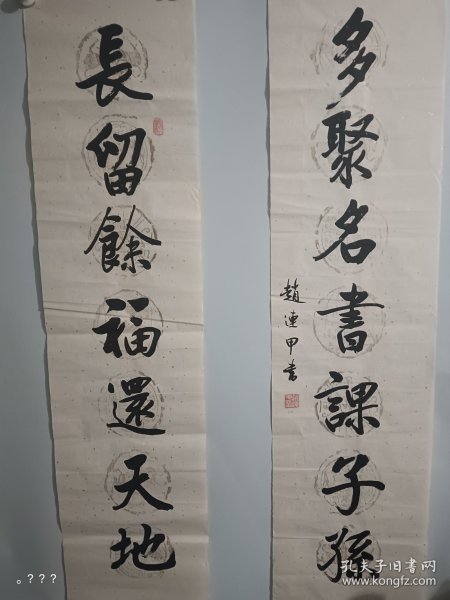 多聚名書課子孫
趙連甲書
長留餘福還天地
。???
孔夫子旧书网
www.kongfz.com